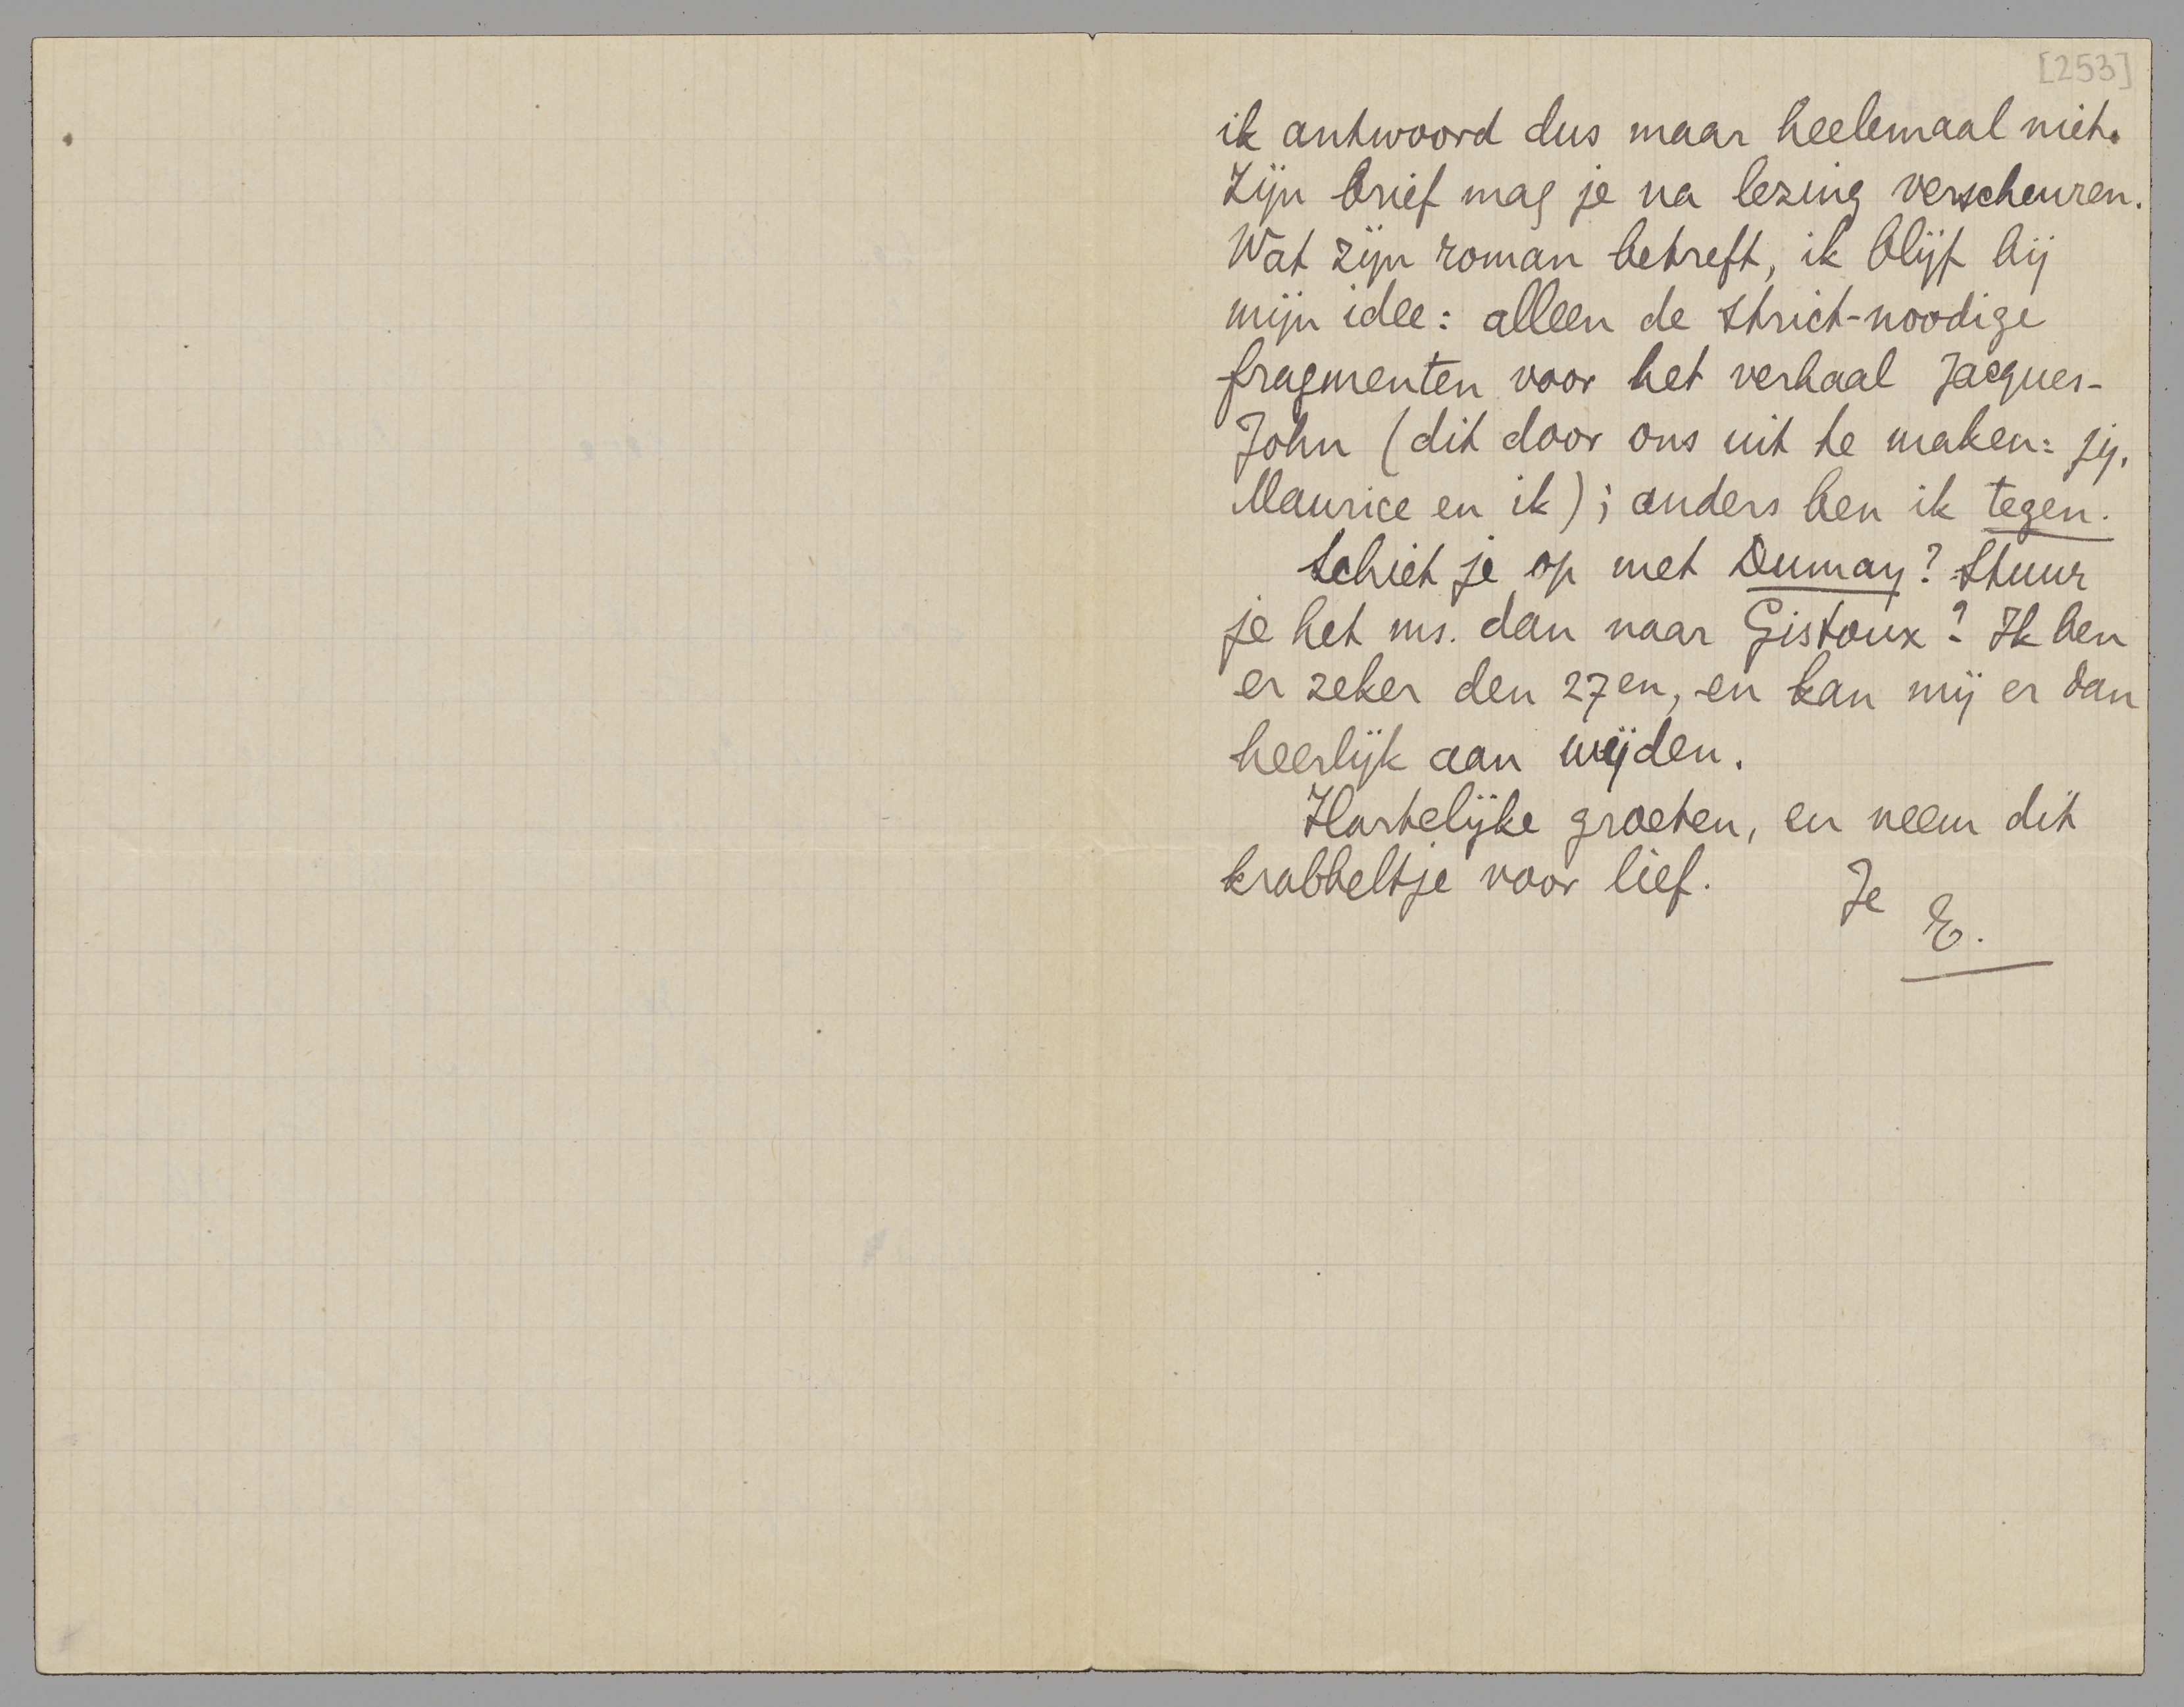 [253]
ik antwoord dus maar heelemaal niet.
Zijn brief mag je na lezing verscheuren.
Wat zijn roman betreft, ik blijf bij
mijn idee: alleen de strict-noodige
fragmenten voor het verhaal Jacques-
John (dit door ons uit te maken: jij,
Maurice en ik); anders ben ik tegen.
Schiet je op met Dumay? Stuur
je het ms. dan naar Gistoux? Ik ben
er zeker den 27en, en kan mij er dan
heerlijk aan wijden.
Hartelijke groeten, en neem dit
krabbeltje voor lief.
Je
E.